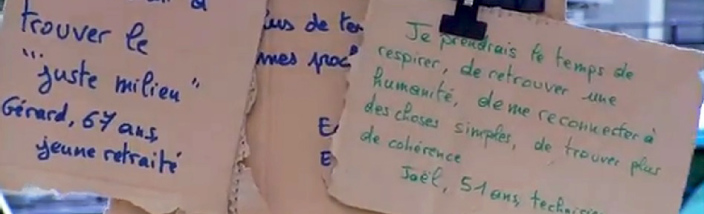 trouver le
"juste milieu"
Gérard, 67 ans,
jeune retraité
de te
mes proc
E
E
Je prendrais le temps de
respirer, de retrouver une
humanité, de me reconnecter à
des choses simples, de trouver plus
de cohérence
Joël, 51 ans, technicie